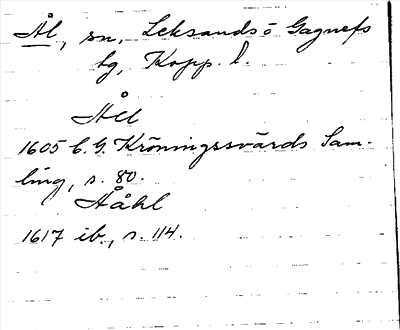 Ål, sn, Leksands o Gagnefs
tg, Kopp. l.
Åll
1605 C. G. Kröningssvärds Sam-
ling, s. 80.
Hååhl
1617 ib., s. 114.